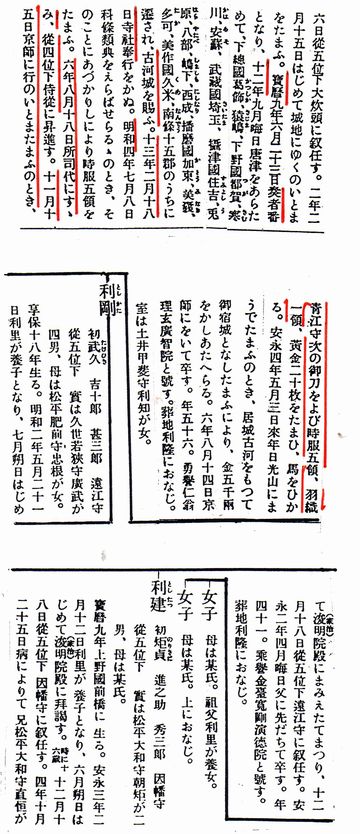 六日從五位下大炊頭に叙任す。二年二
月十五日はじめて城地にゆくのいとま
をたまふ。寶曆九年六月二十三日奏者番
となり、十二年九月晦日唐津をあらた
めて、下總國葛飾、猿嶋、下野國都賀、寒
川、安蘇、武藏國埼玉、攝津國住吉、兎
原、八部、嶋下、西成、播磨國加東、美囊、
多可、美作國久米、南條十五郡のうちに
遷され、古河城を賜ふ。十三年二月十八
日寺社奉行をかぬ。明和四年七月八日
科條類典をえらばせらるゝのとき、そ
のことにあづかりしにより時服五領を
たまふ。六年八月十八日所司代にすゝ
み、從四位下侍從に昇進す。十一月十
五日京師に行のいとまたまふのとき、
青江守次の御刀をよび時服五領、羽織
一領、黃金二十枚をたまひ、馬をひか
る。安永四年五月三日來年日光山にま
うでたまふのとき、居城古河をもつて
御宿城となしたまふにより、金五千兩
をかしあたへらる。六年八月十四日京
師にをいて卒す。年五十六。勇譽仁翁
理玄廣智院と號す。葬地利隆におなじ。
室は土井甲斐守利知が女。
利剛
としかた
初武久 吉十郎 甚三郎 遠江守
從五位下 實は久世若狹守廣武が
四男、母は松平肥前守忠根が女。
享保十八年生る。明和二年五月二十一
日利里が養子となり、七月朔日はじめ
て浚明院殿にまみえたてまつり、十二
月十八日從五位下遠江守に叙任す。安
永二年四月晦日父に先だちて卒す。年
四十一。乘譽金臺寬剛演德院と號す。
葬地利隆におなじ。
女子 母は某氏。祖父利里が養女。
女子 母は某氏。上におなじ。
利建
としたつ
初矩貞 進之助 秀三郎 因幡守
從五位下 實は松平大和守朝矩が二
男、母は某氏。
寶曆九年上野國前橋に生る。安永三年二
月十二日利里が養子となり、六月朔日は
じめて浚明院殿に拜謁す。時に十六歲 十二月十
八日從五位下因幡守に叙任す。四年十月
二十五日病によりて兄松平大和守直恒が